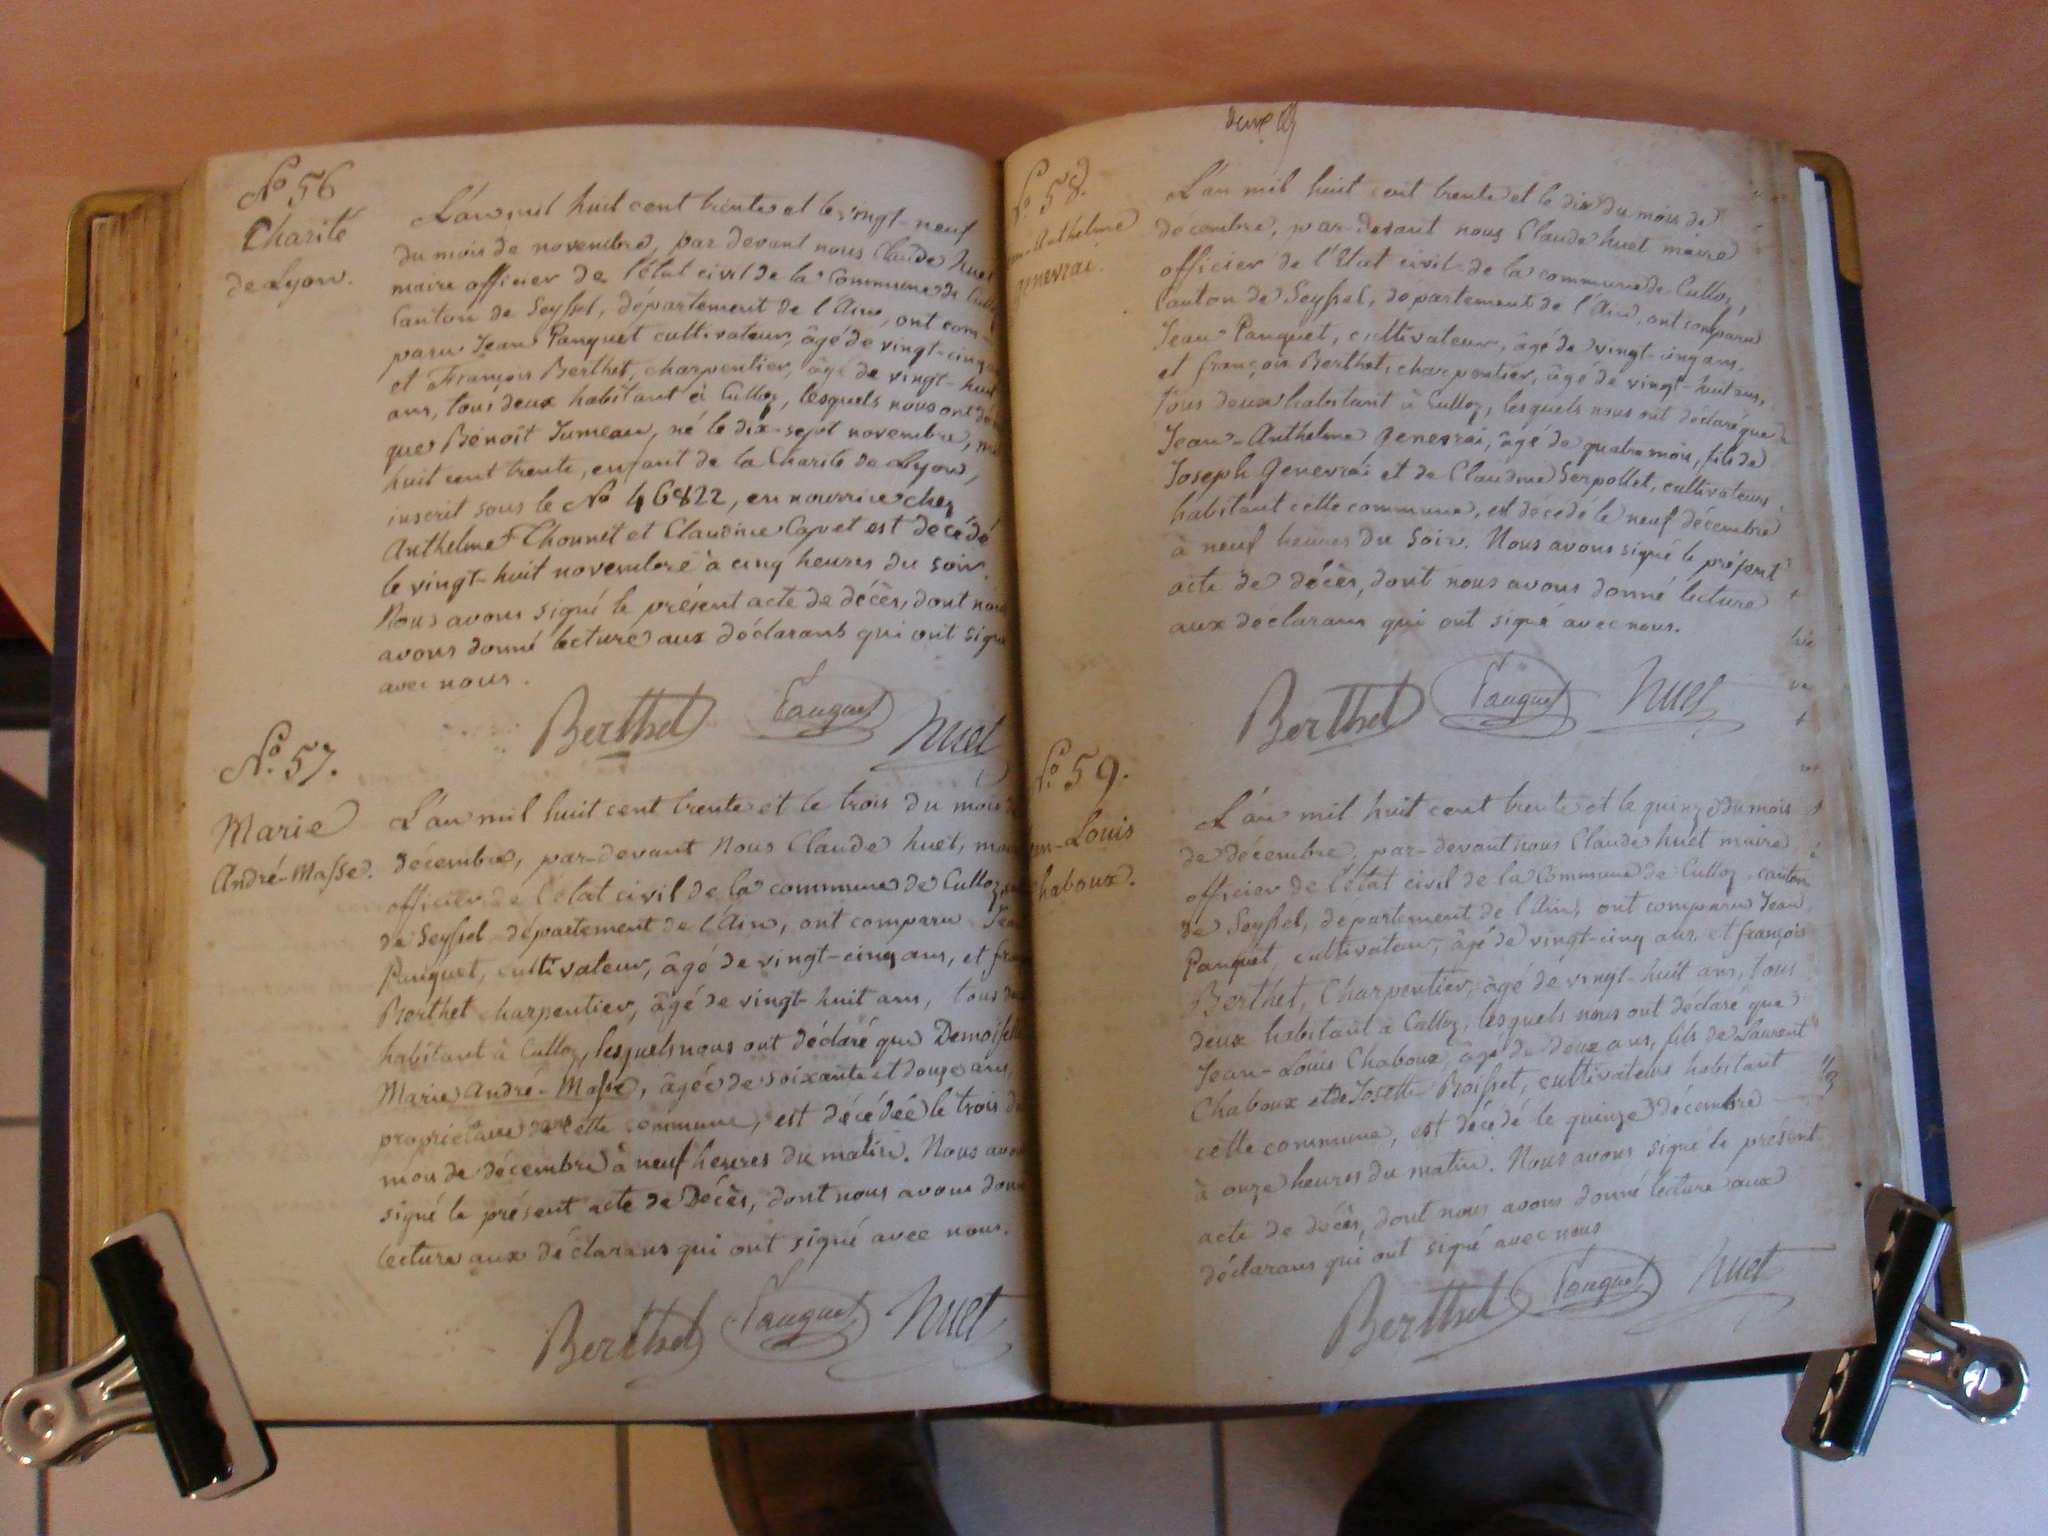 No 56
Charité
de Lyon.
L'an mil huit cent trente et le vingt-neuf
du mois de novembre, par devant nous Claude huet
maire officier de l'état civil de la Commune de Culloz
Canton de Seyssel, département de l'Ain, ont com-
paru Jean Pauquet cultivateur, âgé de vingt-cinq ans
et François Berthet, charpentier, âgé de vingt-huit
ans, tous deux habitant à Culloz, lesquels nous ont
que Bénoît Jumeau, né le dix-sept novembre, mil
huit cent trente, enfant de la Charité de Lyon,
inscrit sous le No 46822, en nourrice chez
Anthelme Thonnet et Claudine Capet est décédé
le vingt-huit novembre à cinq heures du soir.
Nous avons signé le présent acte de décès, dont nous
avons donné lecture aux déclarans qui ont signé
avec nous.
Berthet Pauquet huet
No. 57.
Marie
André-Masse.
L'an mil huit cent trente et le trois du mois de
décembre, par-devant Nous Claude huet, maire
officier de l'état civil de la commune de Culloz,
de Seyssel département de l'Ain, ont comparu Jean
Pauquet, cultivateur, âgé de vingt-cinq ans, et
Berthet charpentier, âgé de vingt-huit ans, tous
habitant à Culloz, lesquels nous ont déclaré que Demoiselle
Marie André-Masse, âgée de soixante et douze ans,
propriétaire de cette commune, est décédée le trois du
mois de décembre à neuf heures du matin. Nous avons
signé le présent acte de Décès, dont nous avons donné
lecture aux déclarans qui ont signé avec nous.
Berthet Pauquet huet
No 58.
Anthelme
genevrai.
L'an mil huit cent trente et le dix du mois de
décembre, par-devant nous Claude huet maire
officier de l'Etat civil de la commune de Culloz,
Canton de Seyssel, département de l'Ain, ont comparu
Jean Pauquet, cultivateur, âgé de vingt-cinq ans,
et françois Berthet, charpentier, âgé de vingt-huit ans,
tous deux habitant à Culloz, lesquels nous ont déclaré que
Jean-Anthelme genevrai, âgé de quatre mois, fils de
Joseph genevrai et de Claudine Serpollet, cultivateurs
habitant cette commune, est décédé le neuf décembre
à neuf heures du Soir. Nous avons signé le présent
acte de décès, dont nous avons donné lecture
aux déclarans qui ont signé avec nous.
Berthet Pauquet huet
No 59.
Louis
haboux.
L'an mil huit cent trente et le quinze du mois
de décembre, par-devant nous Claude huet maire
officier de l'état civil de la Commune de Culloz canton
de Seyssel, département de l'Ain, ont comparu Jean
Pauquet, cultivateur, âgé de vingt-cinq ans, et françois
Berthet, Charpentier, âgé de vingt-huit ans, tous
deux habitant à Culloz, lesquels nous ont déclaré que
Jean-Louis Chaboux, âgé de deux ans, fils de Laurent
Chaboux et de Josette Boisset, cultivateurs habitant
cette commune, est décédé le quinze décembre
à onze heures du matin. Nous avons signé le présent
acte de décès, dont nous avons donné lecture aux
déclarans qui ont signé avec nous
Berthet Pauquet huet